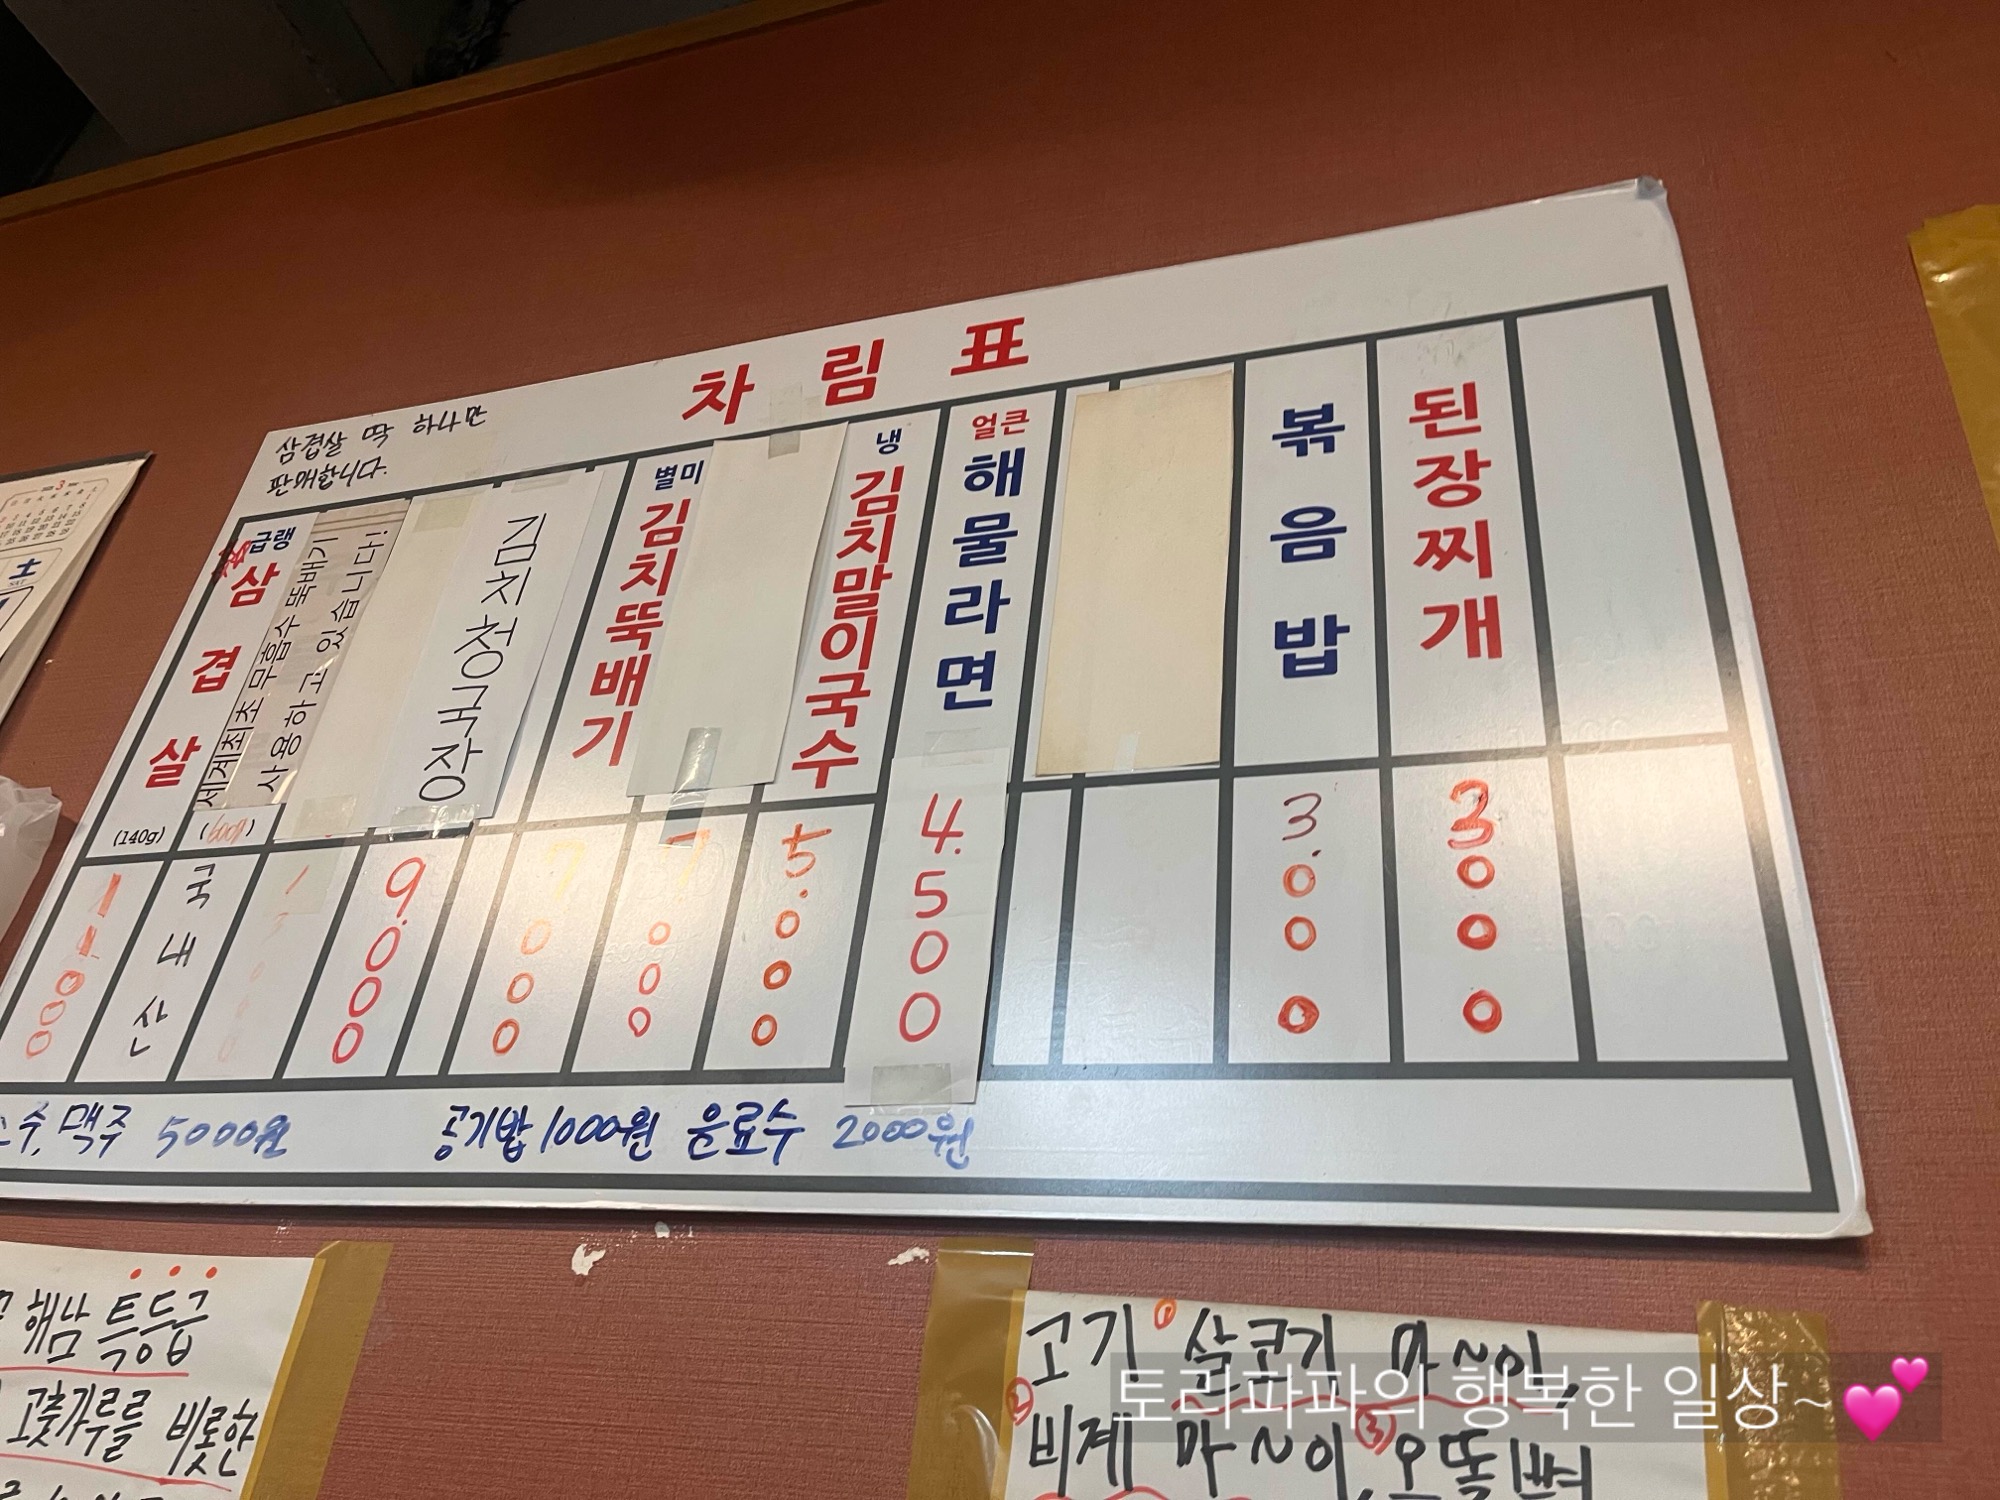 차림표
삼겹살 딱 하나만
판매합니다.
급랭
삼겹살
(140g)
세계최초 무흡수 뚝배기
사용하고 있습니다!
국내산
9.000
별미
김치뚝배기
7000
7.000
냉
김치말이국수
5.000
얼큰
해물라면
4.500
볶음밥
3.000
된장찌개
3000
맥주 5000원
공기밥 1000원 음료수 2000원
해남 특등급
고춧가루를 비롯한
고기 ① 살코기 마~이
② 비계 마~이 ③ 오돌뼈
토리파파의 행복한 일상~💕
3
土
SAT